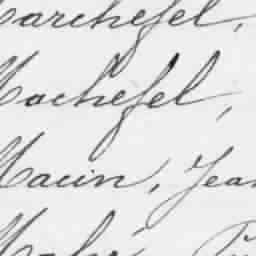 Marchefel,
Machefel,
Macin, Jean
Mahé